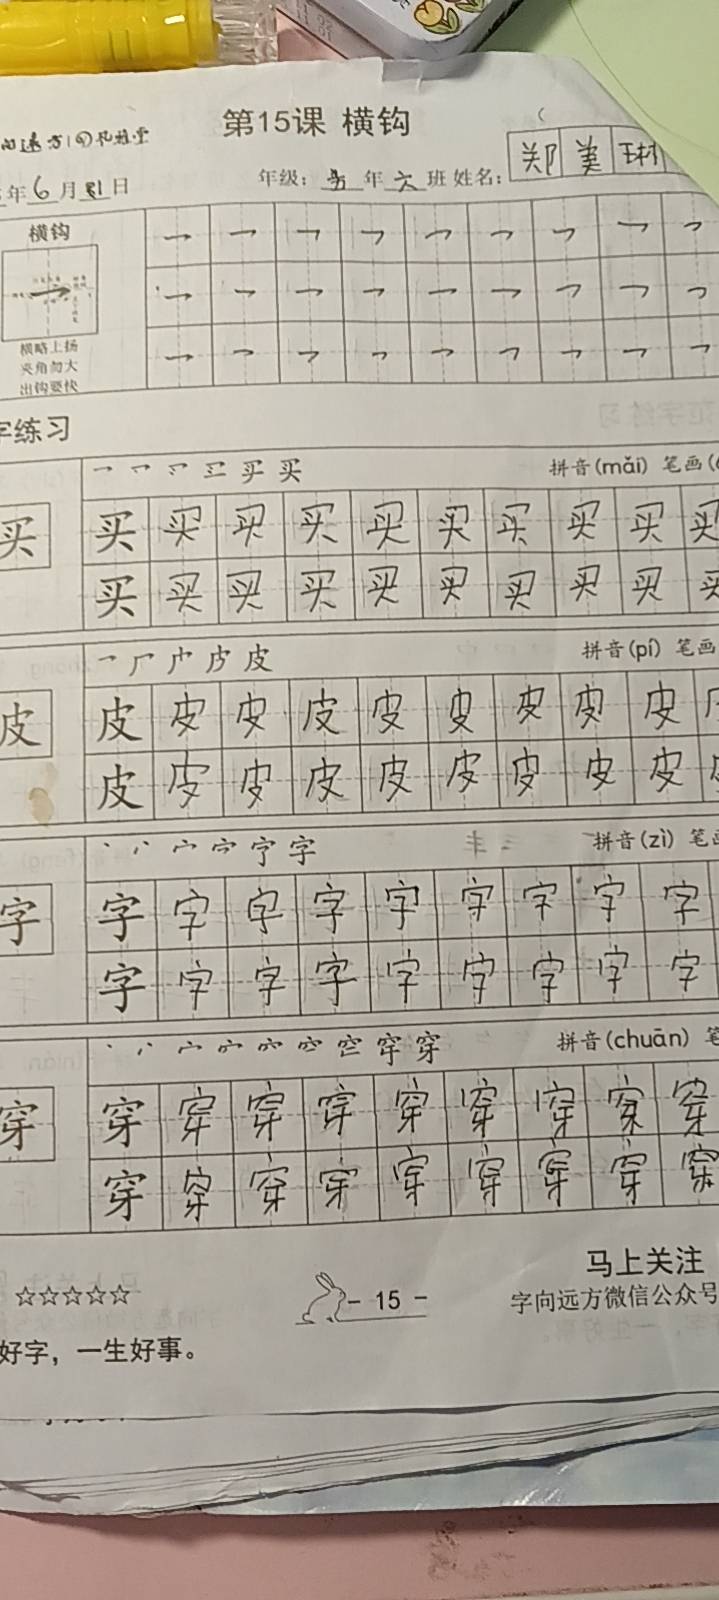 第15课 横钩
年6月31日 年级：五年六班 姓名：郑美琳
横钩
横略上扬
夹角勿大
出钩要快
字练习
买 拼音(mǎi) 笔画(
买 买 买 买 买 买 买 买 买 买 买
买 买 买 买 买 买 买 买 买 买
皮 拼音(pí) 笔画
皮 皮 皮 皮 皮 皮 皮 皮 皮 皮
皮 皮 皮 皮 皮 皮 皮 皮 皮
字 拼音(zì) 笔画
字 字 字 字 字 字 字 字 字 字
字 字 字 字 字 字 字 字 字
空 穿 穿 拼音(chuān) 笔
穿 穿 穿 穿 穿 穿 穿 穿 穿 穿
穿 穿 穿 穿 穿 穿 穿 穿 穿
马上关注
☆☆☆☆☆ - 15 - 字向远方微信公众号
好字，一生好事。